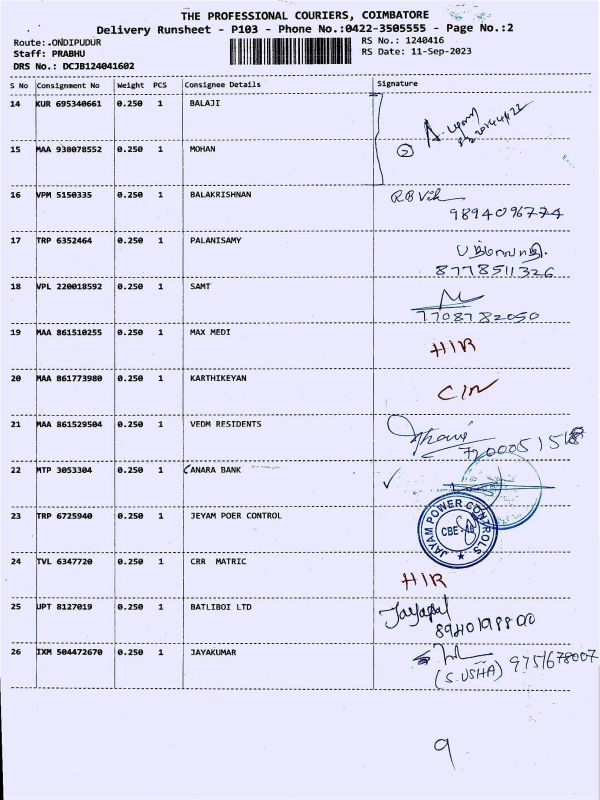 THE PROFESSIONAL COURIERS, COIMBATORE
Delivery Runsheet - P103 - Phone No.:0422-3505555 - Page No.:2
Route:.ONDIPUDUR RS No.: 1240416
Staff: PRABHU RS Date: 11-Sep-2023
DRS No.: DCJB124041602
S No Consignment No Weight PCS Consignee Details Signature
14 KUR 695340661 0.250 1 BALAJI
15 MAA 938078552 0.250 1 MOHAN
16 VPM 5150335 0.250 1 BALAKRISHNAN
9894096774
17 TRP 6352464 0.250 1 PALANISAMY
8778511326
18 VPL 220018592 0.250 1 SAMT
7708782050
19 MAA 861510255 0.250 1 MAX MEDI HIR
20 MAA 861773980 0.250 1 KARTHIKEYAN CIN
21 MAA 861529504 0.250 1 VEDM RESIDENTS
22 MTP 3053304 0.250 1 CANARA BANK
23 TRP 6725940 0.250 1 JEYAM POER CONTROL JAYAM POWER CONTROLS
24 TVL 6347720 0.250 1 CRR MATRIC HIR
25 UPT 8127019 0.250 1 BATLIBOI LTD Jayapal
26 IXM 504472670 0.250 1 JAYAKUMAR 9751678007
(S.USHA)
9